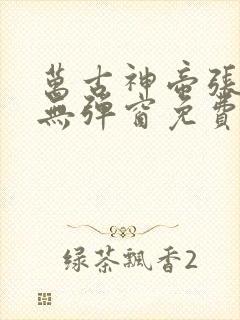 萬古神帝張
無彈窗免費
绿茶飄香2